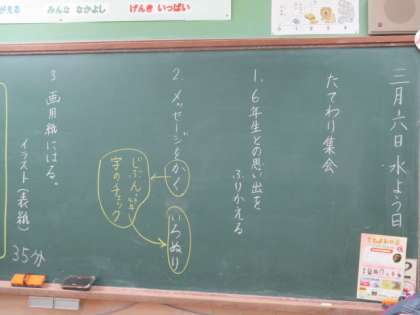 がえる
みんな なかよし
げんき いっぱい
三月六日 水よう日
たてわり集会
1. 6年生との思い出を
ふりかえる
2. メッセージをかく
いろぬり
字のチェック
3. 画用紙にはる。
イラスト(表紙)
35分